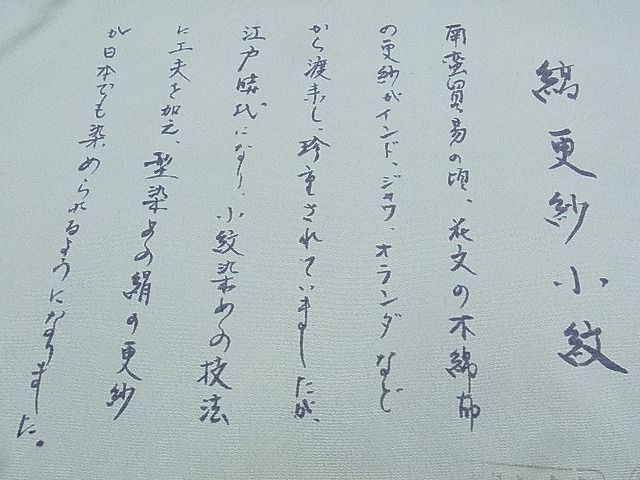 縞更紗小紋
南蛮貿易の頃、花文の木綿布
の更紗がインド、ジャワ、オランダなど
から渡来し、珍重されていましたが、
江戸時代になり、小紋染めの技法
に工夫を加え、型染めの絹の更紗
が日本でも染められるようになりました。